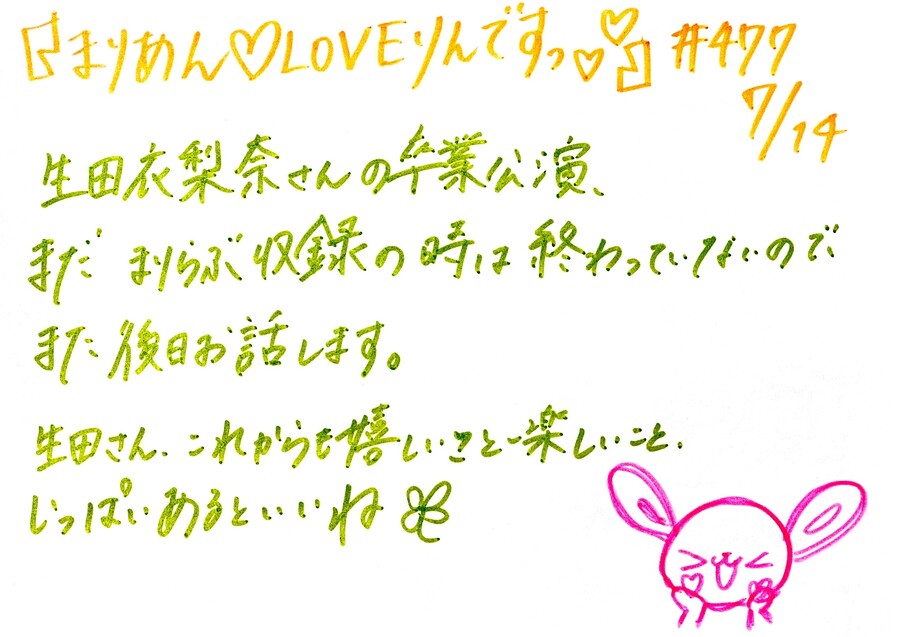 『まりあん♡LOVEりんですっ♡♡』 #477
7/14
生田衣梨奈さんの卒業公演、
まだ まりらぶ収録の時は終わっていないので
また後日お話します。
生田さん、これからも嬉しいこと楽しいこと、
いっぱいあるといいね